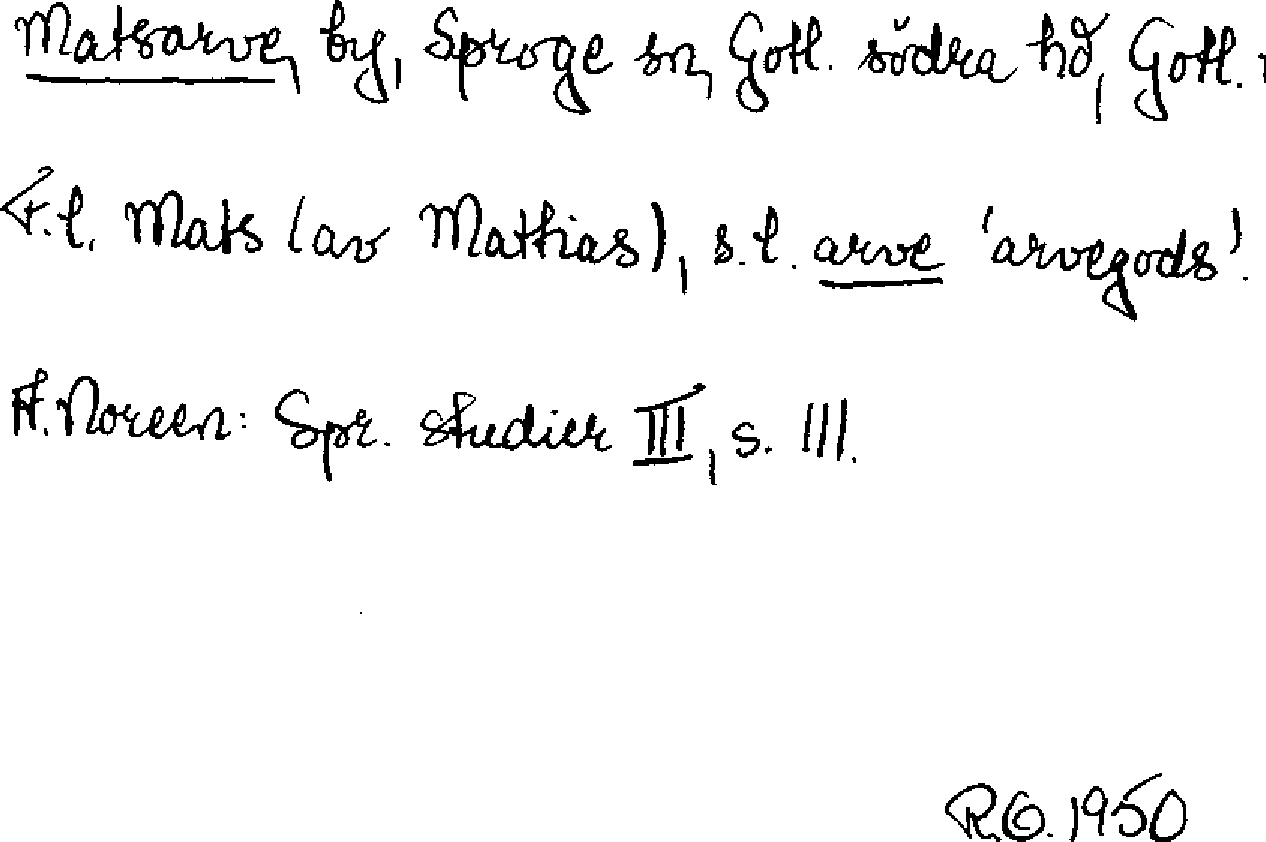 Matsarve, by, Sproge sn, Gotl. södra hd, Gotl. l
F.l. Mats (av Mathias), s.l. arve 'arvegods'.
A. Noreen: Spr. studier III, s. 111.
R.G. 1950